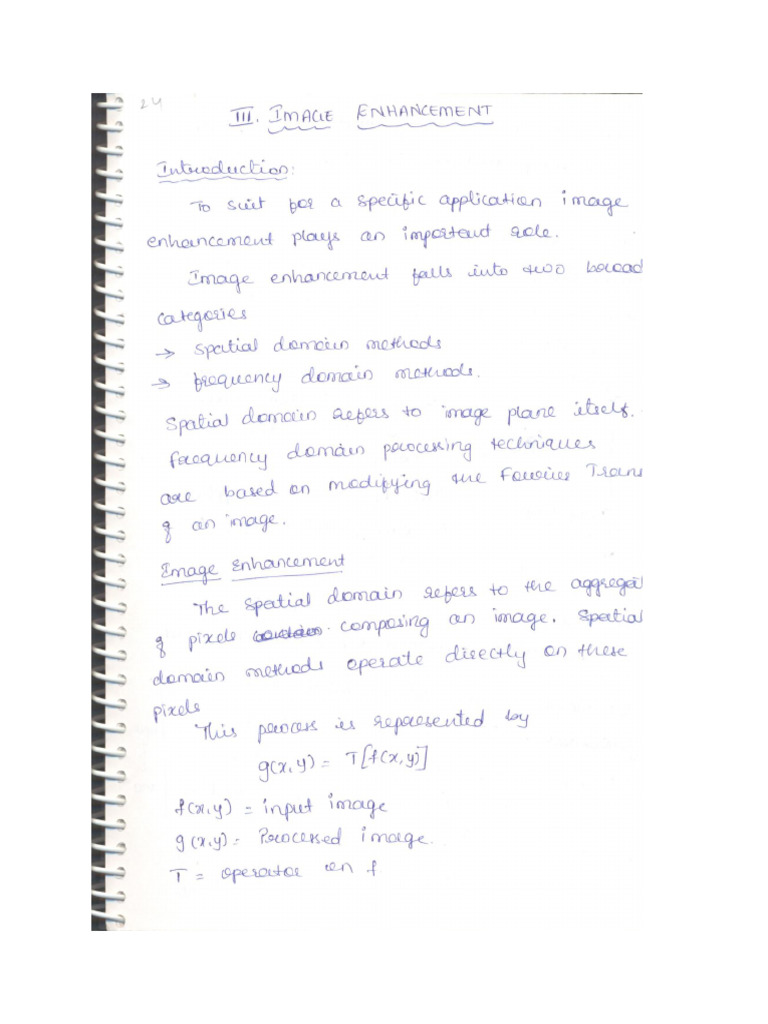 24
III. IMAGE ENHANCEMENT
Introduction:
To suit for a specific application image
enhancement plays an important role.
Image enhancement falls into two broad
categories
→ Spatial domain methods
→ frequency domain methods.
Spatial domain refers to image plane itself.
frequency domain processing techniques
are based on modifying the Fourier Trans
of an image.
Image Enhancement
The spatial domain refers to the aggregat
of pixels composing an image. Spatial
domain methods operate directly on these
pixels
This process is represented by
g(x,y) = T[f(x,y)]
f(x,y) = input image
g(x,y) = Processed image.
T = operator on f